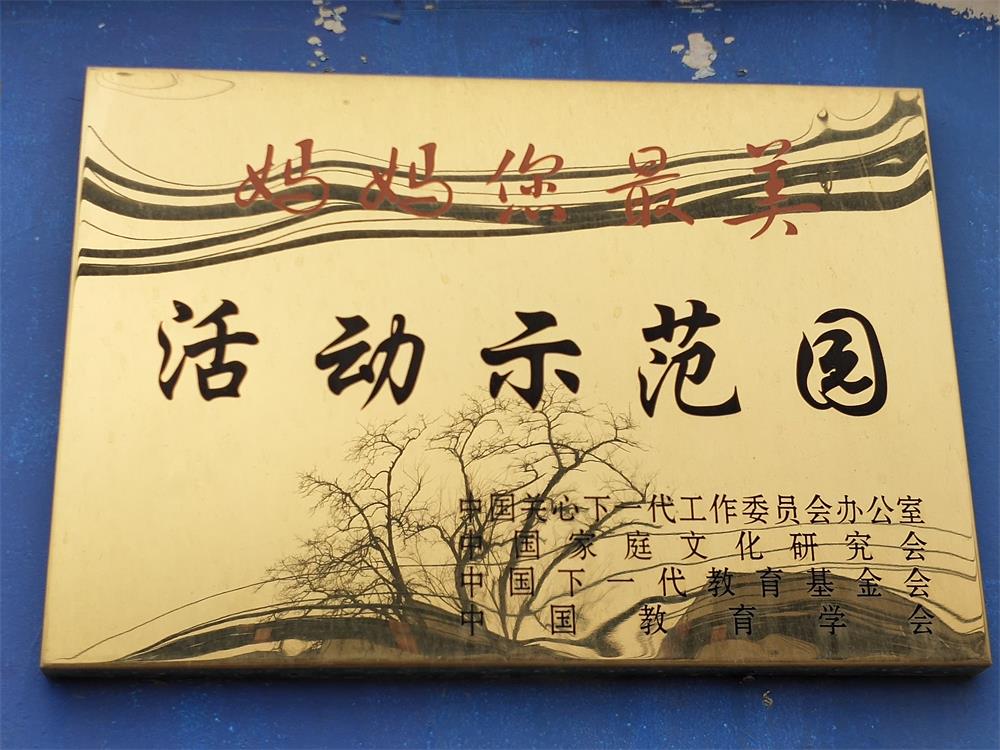 妈妈您最美
活动示范园
中国关心下一代工作委员会办公室
中国家庭文化研究会
中国下一代教育基金会
中国教育学会